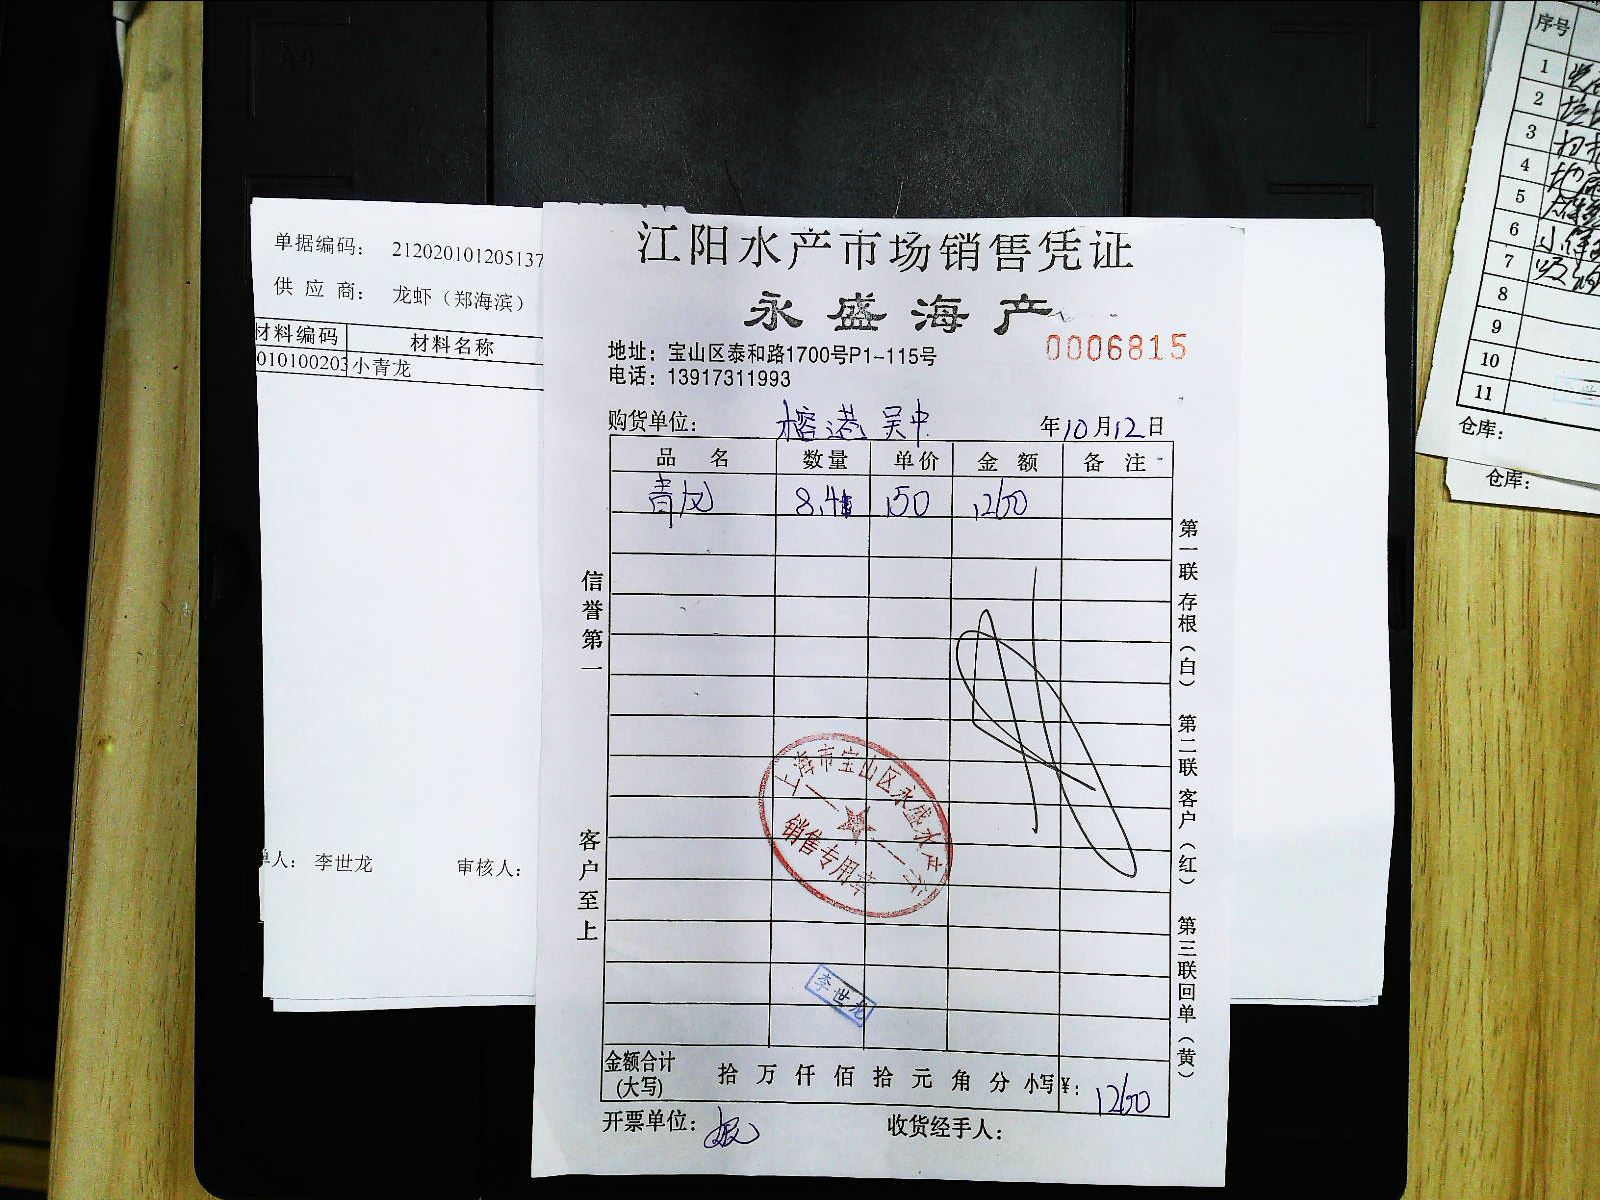 单据编码： 212020101205137
供 应 商： 龙虾（郑海滨）
材料编码 材料名称
010100203 小青龙
单人： 李世龙 审核人：
江阳水产市场销售凭证
永盛海产
0006815
地址：宝山区泰和路1700号P1-115号
电话：13917311993
购货单位： 榕港 吴中 年10月12日
品 名 数量 单价 金 额 备 注
青龙 8.4 150 1260
信誉第一
客户至上
第一联 存根（白） 第二联 客户（红） 第三联 回单（黄）
上海市宝山区永盛水产
销售专用章
李世龙
金额合计(大写) 拾 万 仟 佰 拾 元 角 分 小写¥： 1260
开票单位： 收货经手人：
序号
1
2
3
4
5
6
7
8
9
10
11
仓库：
仓库：